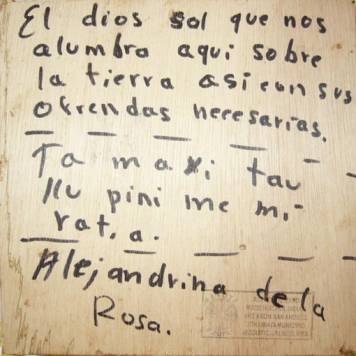 El dios sol que nos
alumbra aqui sobre
la tierra asi con sus
ofrendas necesarias.
Ta maxi tau
Nu pini me mi-
rat. a.
Alejandrina de la
Rosa.